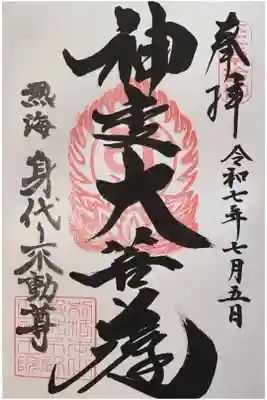 奉拝
令和七年七月五日
神変大菩薩
熱海
身代り不動尊